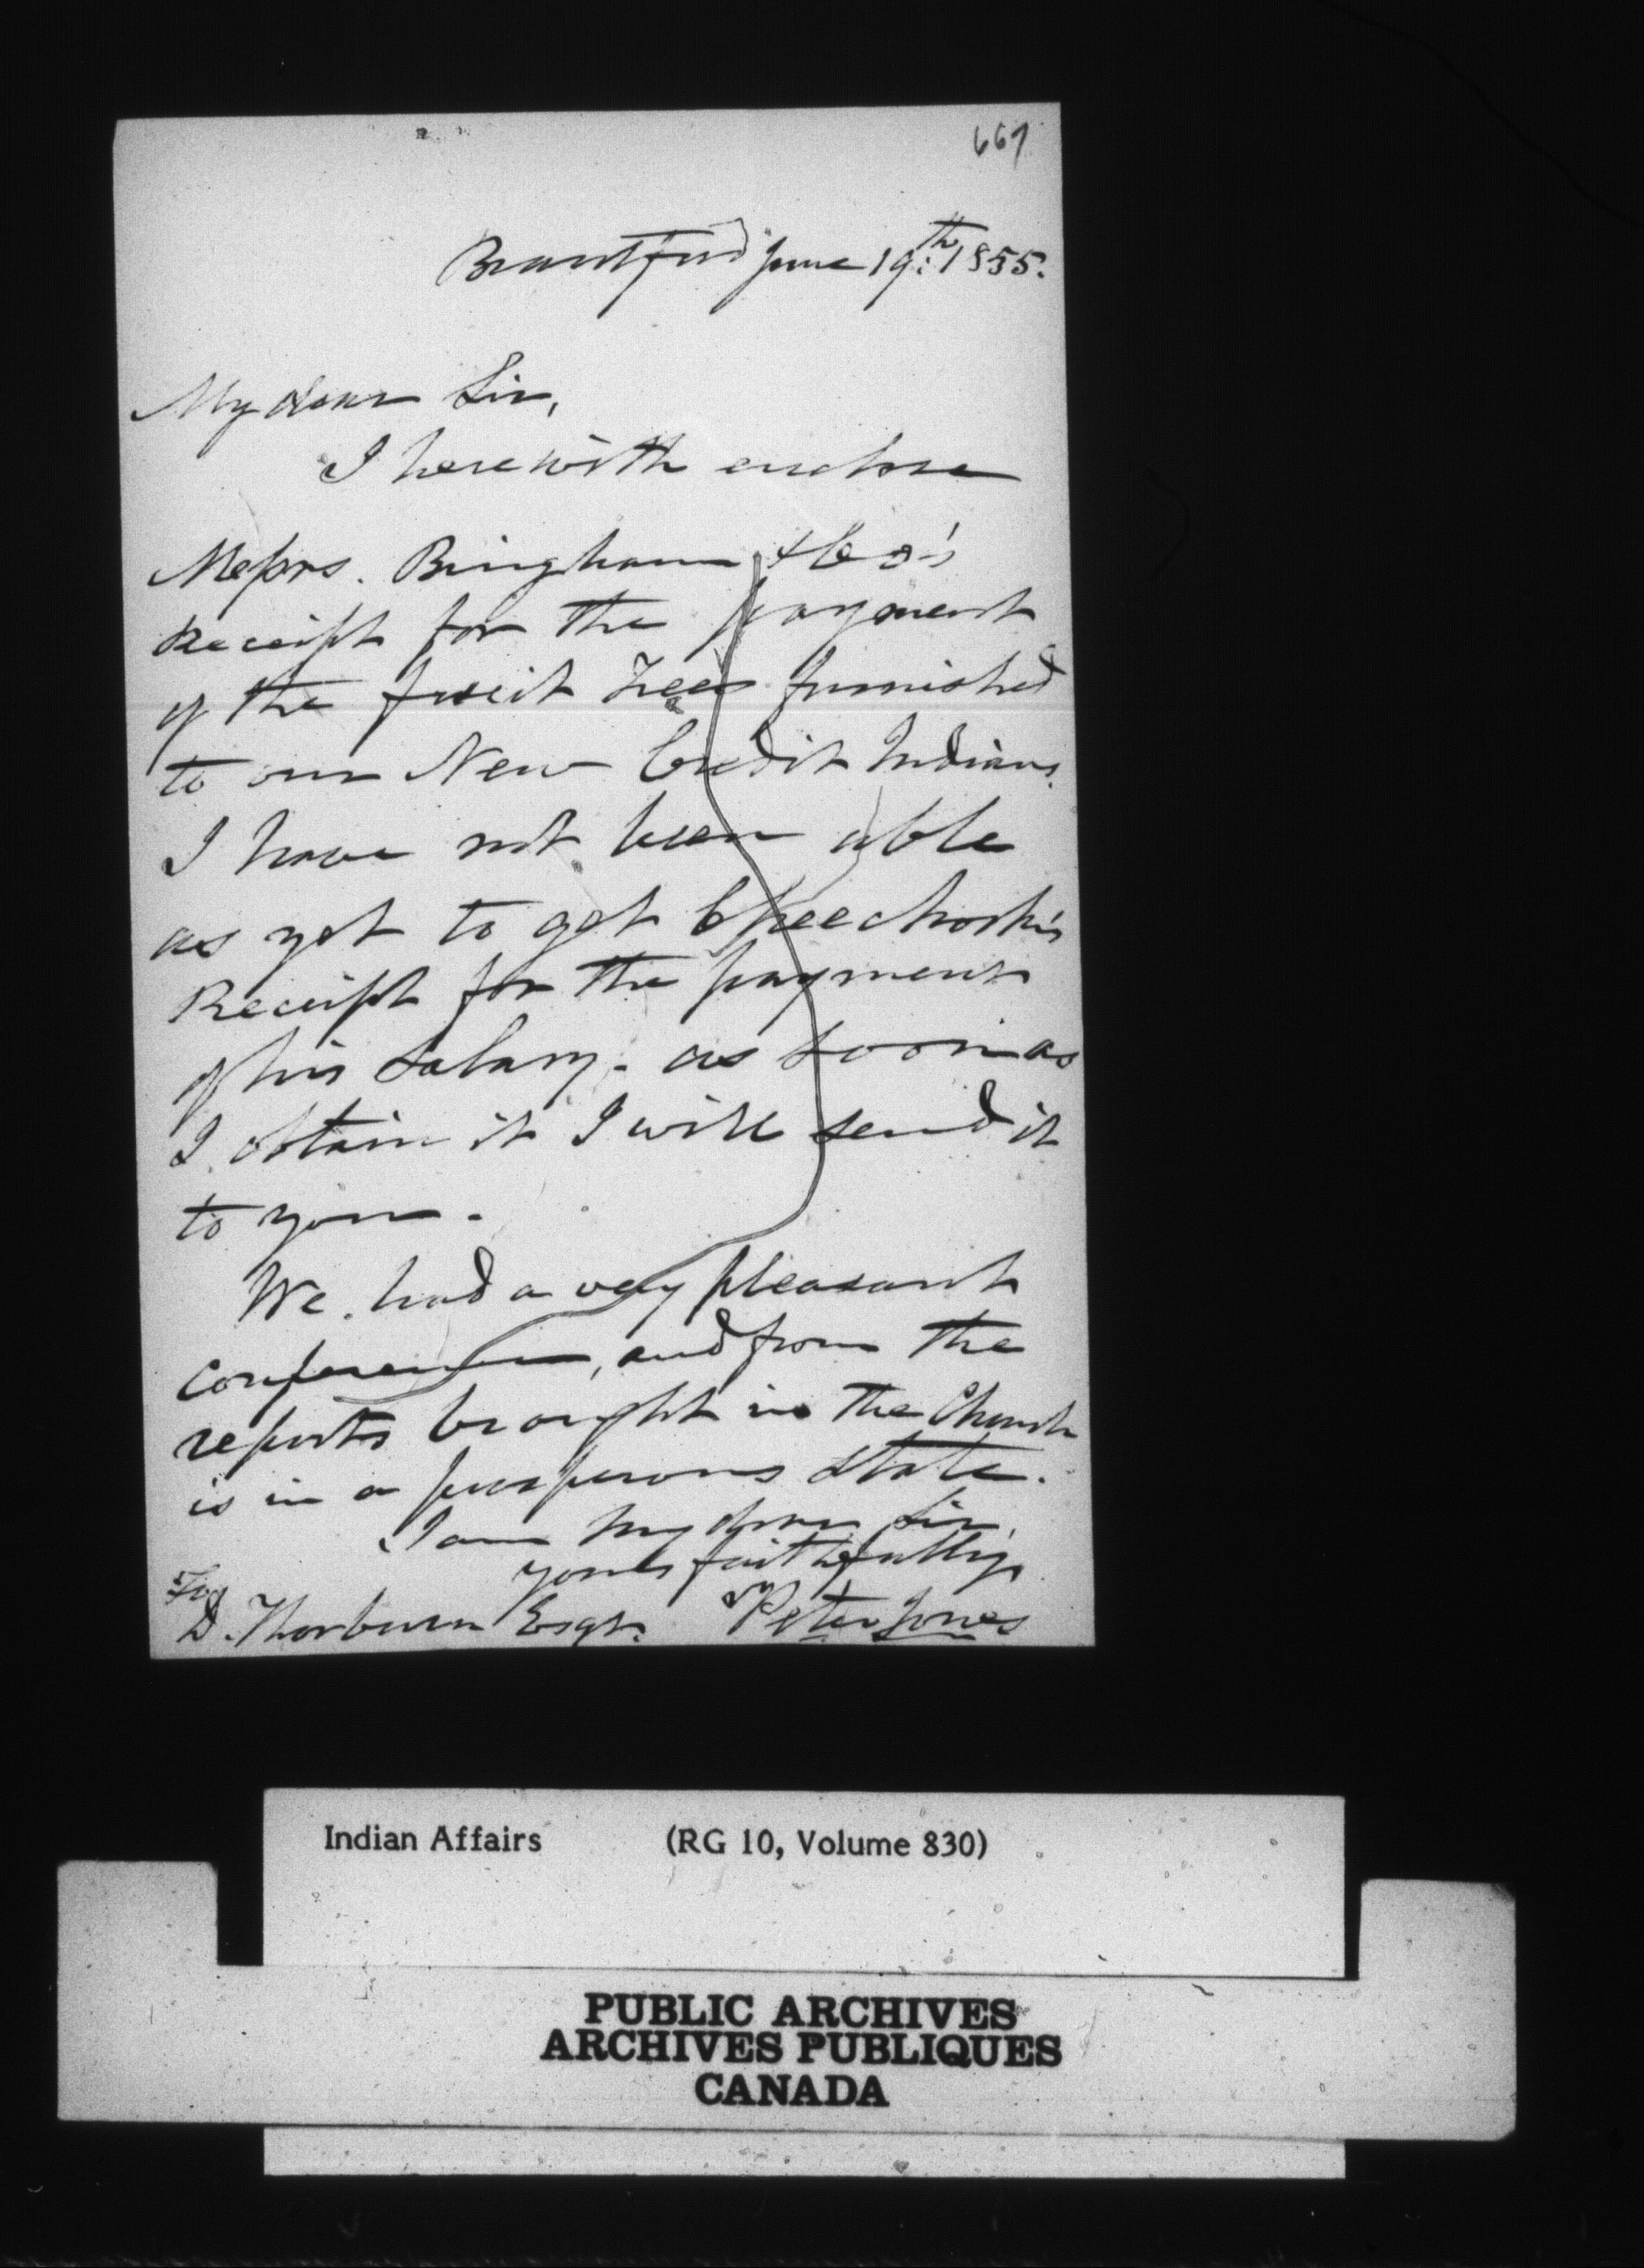 667
Brantford June 19th: 1855.
My dear Sir,
I herewith enclose
Messrs. Bingham & Co's
Receipt for the payment
of the fruit Trees furnished
to our New Credit Indians.
I have not been able
as yet to get
Receipt for the payment
of his Salary. as soon as
I obtain it I will send it
to you.
We had a very pleasant
conference, and from the
reports brought in the Church
is in a prosperous state.
I am my dear Sir,
yours faithfully,
To
D. Thorburn Esqr. Peter Jones
Indian Affairs (RG 10, Volume 830)
PUBLIC ARCHIVES
ARCHIVES PUBLIQUES
CANADA